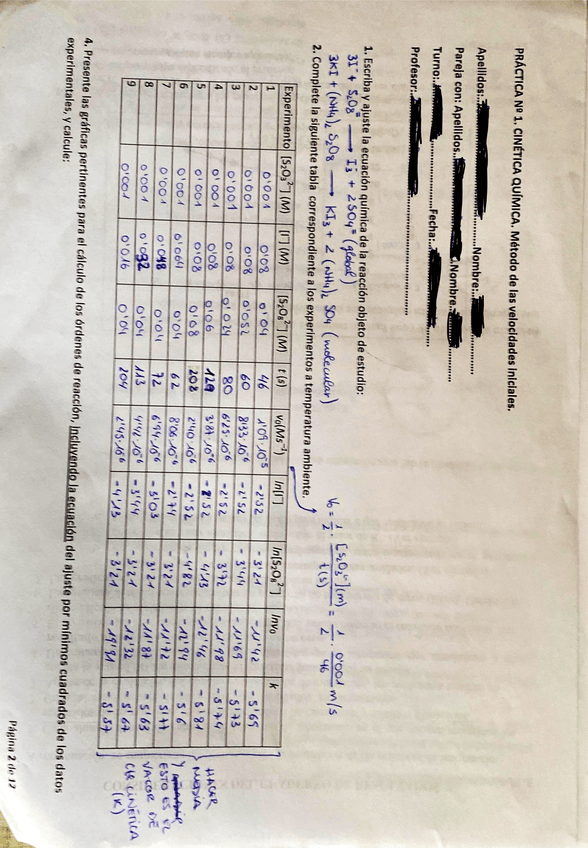 PRÁCTICA Nº 1. CINÉTICA QUÍMICA. Método de las velocidades iniciales.
Apellidos: Nombre:
Pareja con: Apellidos Nombre:
Turno: Fecha:
Profesor:
1. Escriba y ajuste la ecuación química de la reacción objeto de estudio:
3I⁻ + S₂O₈⁼ ⟶ I₃⁻ + 2SO₄⁼ (global)
3KI + (NH₄)₂ S₂O₈ ⟶ KI₃ + 2 (NH₄)₂ SO₄ (molecular)
V₀ = 1/2 · [S₂O₃⁼](m) / t(s) = 1/2 · 0'001/46 m/s
2. Complete la siguiente tabla correspondiente a los experimentos a temperatura ambiente.
Experimento [S₂O₃²⁻] (M) [I⁻] (M) [S₂O₈²⁻] (M) t (s) v₀(Ms⁻¹) ln[I⁻] ln[S₂O₈²⁻] lnv₀ k
1 0'001 0'08 0'04 46 1'09·10⁻⁵ -2'52 -3'21 -11'42 -5'65
2 0'001 0'08 0'032 60 8'33·10⁻⁶ -2'52 -3'44 -11'69 -5'73
3 0'001 0'08 0'024 80 6'25·10⁻⁶ -2'52 -3'72 -11'98 -5'74
4 0'001 0'08 0'016 129 3'87·10⁻⁶ -2'52 -4'13 -12'46 -5'81
5 0'001 0'08 0'08 208 2'40·10⁻⁶ -2'52 -4'82 -12'94 -5'6
6 0'001 0'064 0'04 62 8'06·10⁻⁶ -2'74 -3'21 -11'72 -5'77
7 0'001 0'048 0'04 72 6'94·10⁻⁶ -3'03 -3'21 -11'87 -5'63
8 0'001 0'032 0'04 113 4'42·10⁻⁶ -3'44 -3'21 -12'32 -5'67
9 0'001 0'016 0'04 204 2'45·10⁻⁶ -4'13 -3'21 -5'57
HACER
MEDIA
Y
ESTO ES EL
VALOR DE
CTE CINÉTICA
(K)
4. Presente las gráficas pertinentes para el cálculo de los órdenes de reacción, incluyendo la ecuación del ajuste por mínimos cuadrados de los datos
experimentales, y calcule:
Página 2 de 12